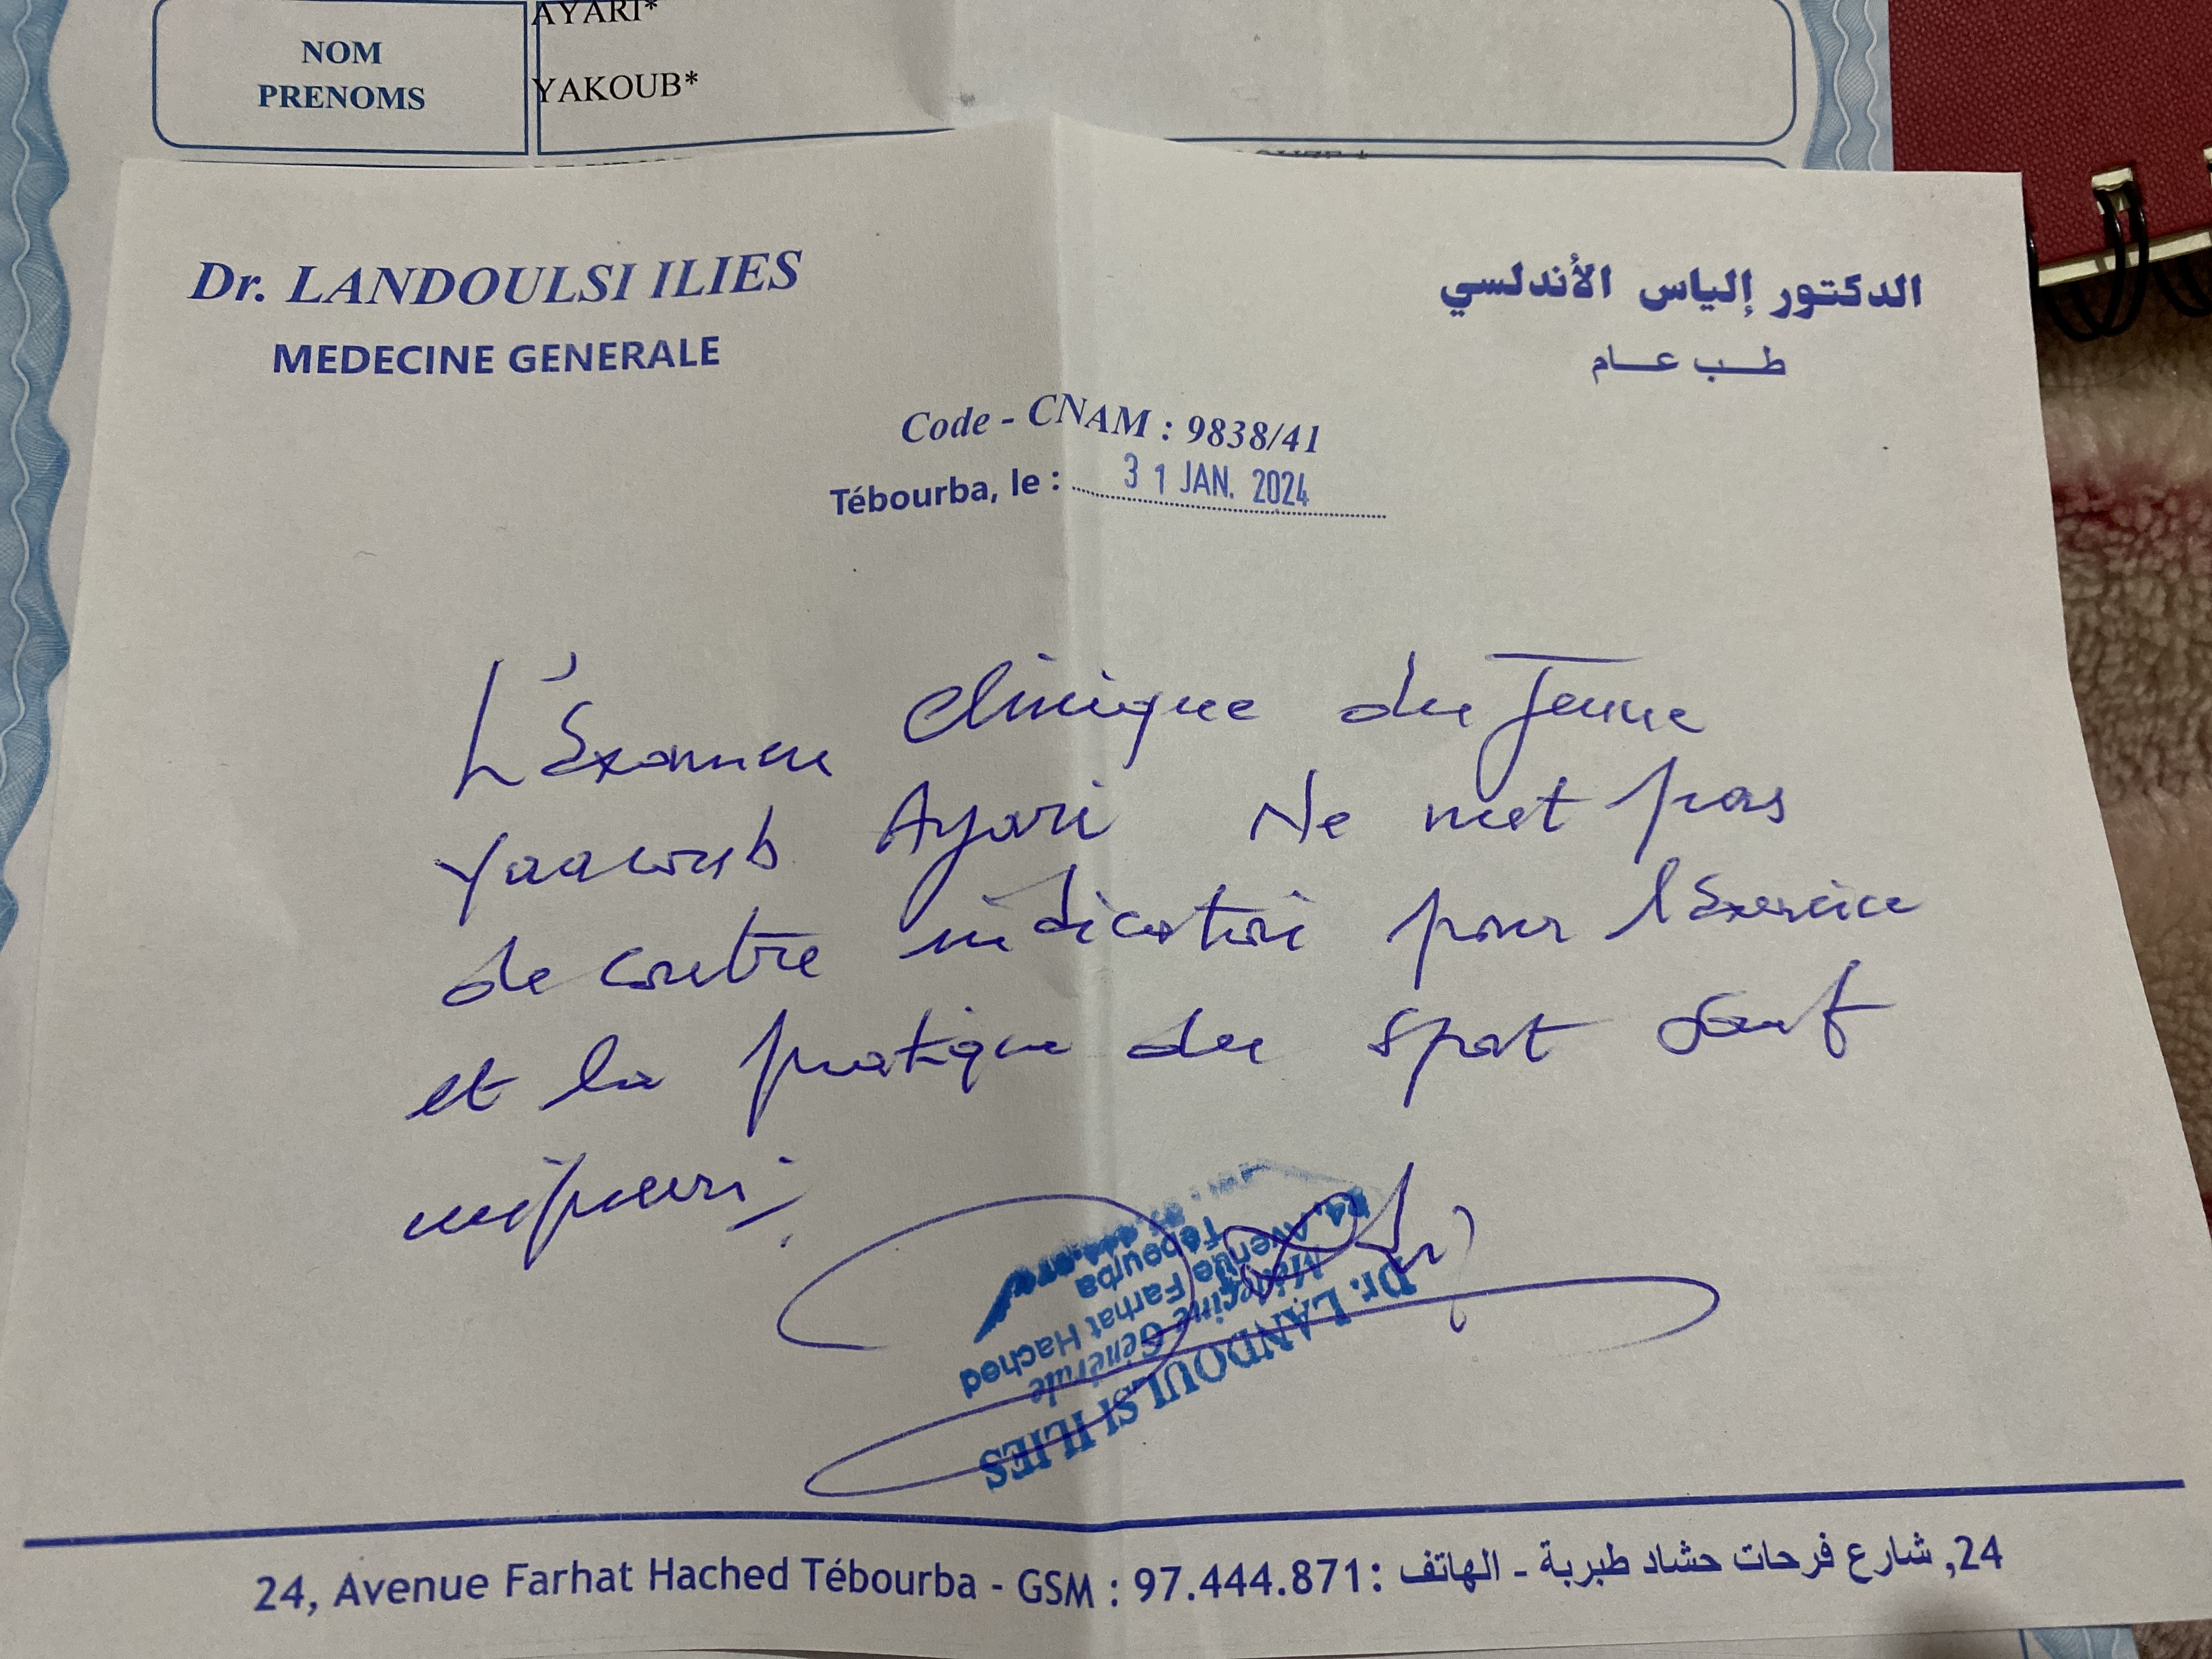 NOM
PRENOMS
AYARI*
YAKOUB*
Dr. LANDOULSI ILIES
MEDECINE GENERALE
الدكتور إلياس الأندلسي
طب عام
Code - CNAM : 9838/41
Tébourba, le : 31 JAN. 2024
L'Examen clinique du Jeune
Yaacoub Ayari Ne met pas
de contre indication pour l'Exercice
et la pratique du sport sauf
Dr. LANDOULSI ILIES
Médecine Générale
24, Avenue Farhat Hached
Tébourba
24, Avenue Farhat Hached Tébourba - GSM : 97.444.871 : الهاتف - 24, شارع فرحات حشاد طبربة